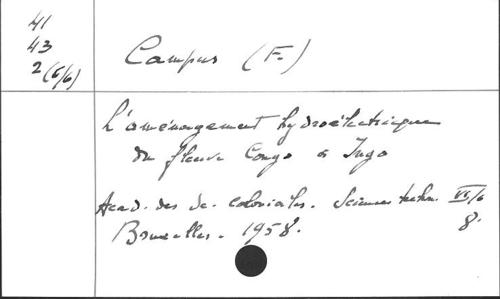 41
43
2 (6/6)
Campus (F.)
L'aménagement hydroélectrique
du fleuve Congo à Inga
Acad. des Sc. coloniales. Sciences techn. VII/6
Bruxelles. 1958. 8.